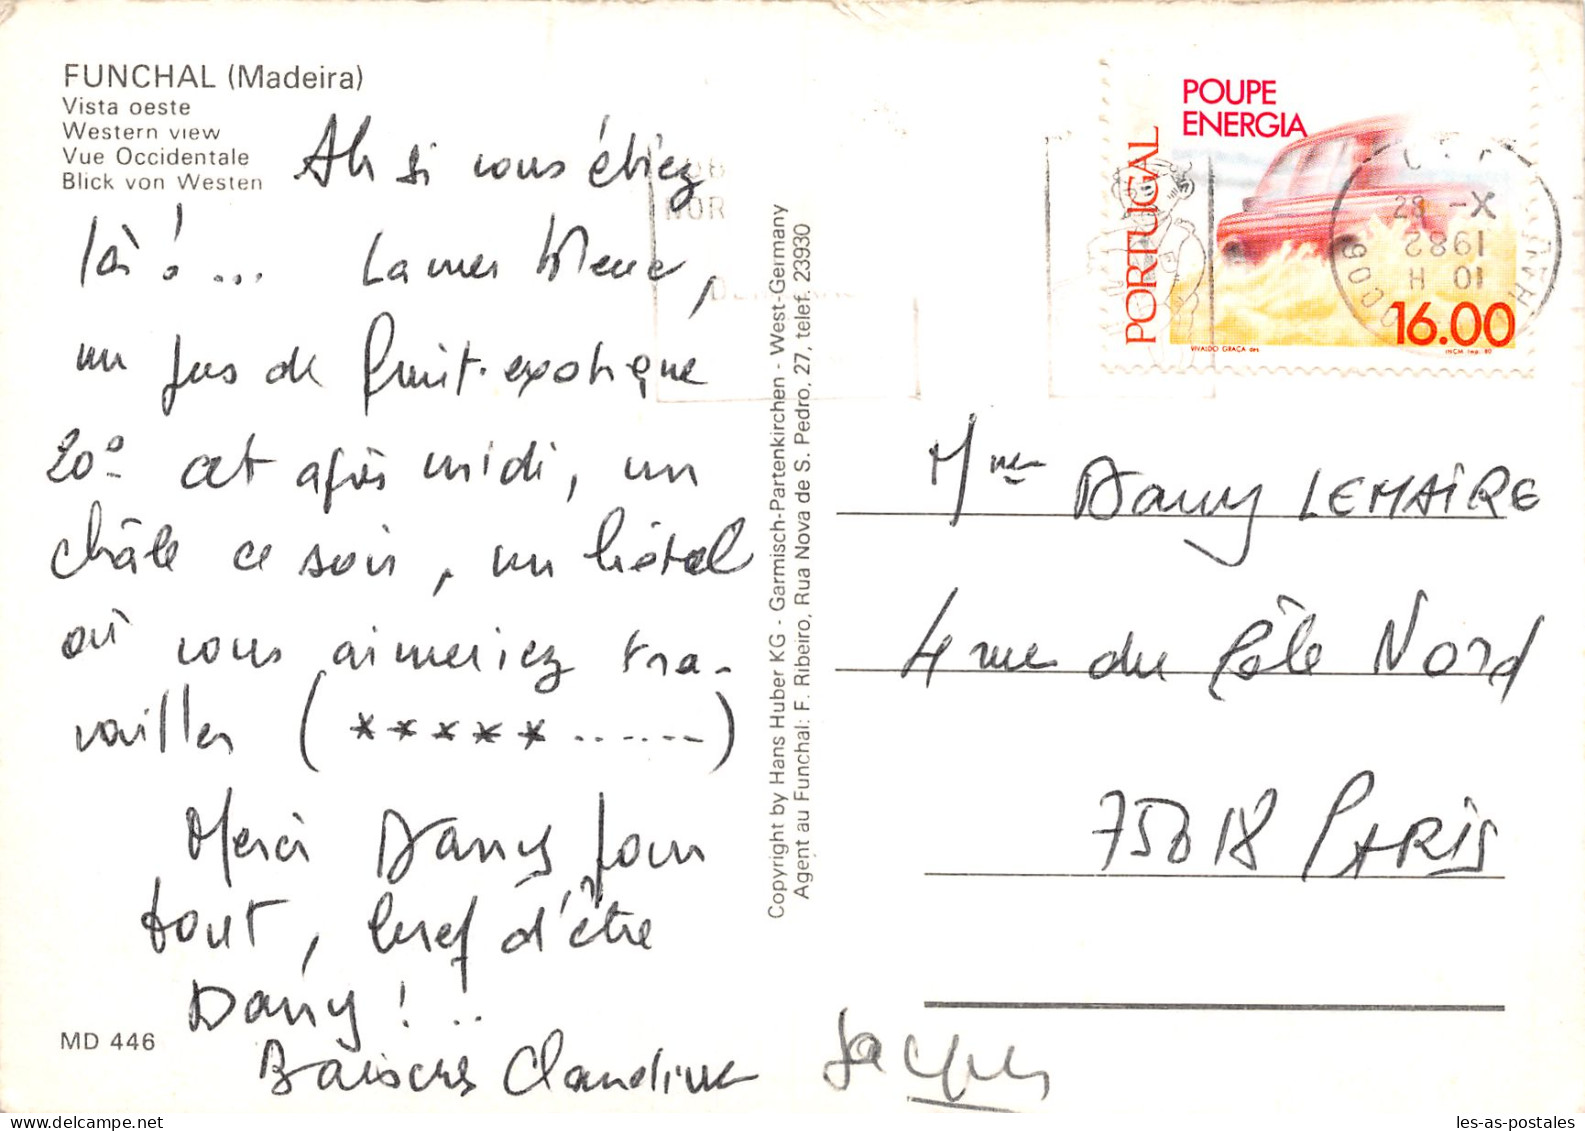 FUNCHAL (Madeira)
Vista oeste
Western view
Vue Occidentale
Blick von Westen
Ah si vous étiez
là ! ... La mer bleue,
un jus de fruit exotique
20° cet après midi, un
châle ce soir, un hôtel
où vous aimeriez tra-
vailler (***** ......)
Merci Dany pour
tout, bref d'être
Dany ! ..
Baisers Claudine Jacques
MD 446
Copyright by Hans Huber KG - Garmisch-Partenkirchen - West-Germany
Agent au Funchal: F. Ribeiro, Rua Nova de S. Pedro, 27, telef. 23930
POUPE
ENERGIA
PORTUGAL
16.00
VIVALDO GRAÇA des.
INCM imp. 80
28 -X
1982
10 H
9000
Mme Dany LEMAIRE
4 rue du Pôle Nord
75018 PARIS
les-as-postales